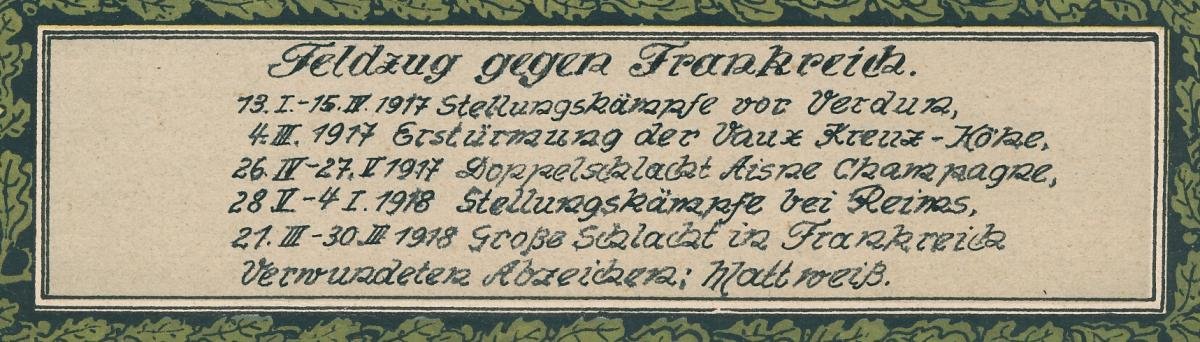 Feldzug gegen Frankreich.
13. I.-15. IV. 1917 Stellungskämpfe vor Verdun,
4. III. 1917 Erstürmung der Vaux Kreuz-Höhe,
26. IV-27. V 1917 Doppelschlacht Aisne Champagne,
28 V-4 I. 1918 Stellungskämpfe bei Reims,
21. III-30 III 1918 Große Schlacht in Frankreich
Verwundeten Abzeichen; Mattweiß.